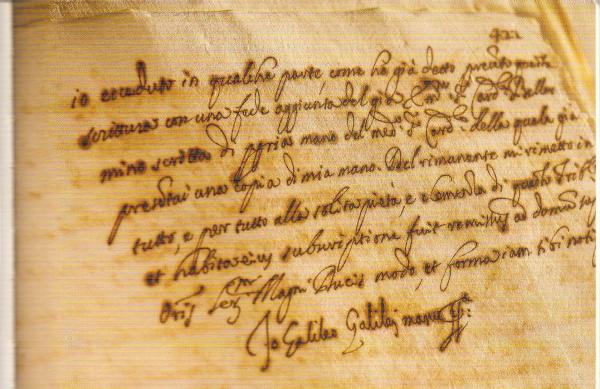 422
io ecceduto in qualche parte, come ho già detto presento questa
scrittura con una fede aggiunta del già Em.mo S.r Card.l Bellar
mino scritta di propria mano del med.o S.r Card.l della quale già
presentai una copia di mia mano. Del rimanente mi rimetto in
tutto, e per tutto alla solita pietà, e clemenza di questo Trib.le
et habita eius subscriptione fuit remissus ad domum
Oris Ser.mi Magni Ducis modo, et forma iam sibi noti
Io Galileo Galilei manu pp.a